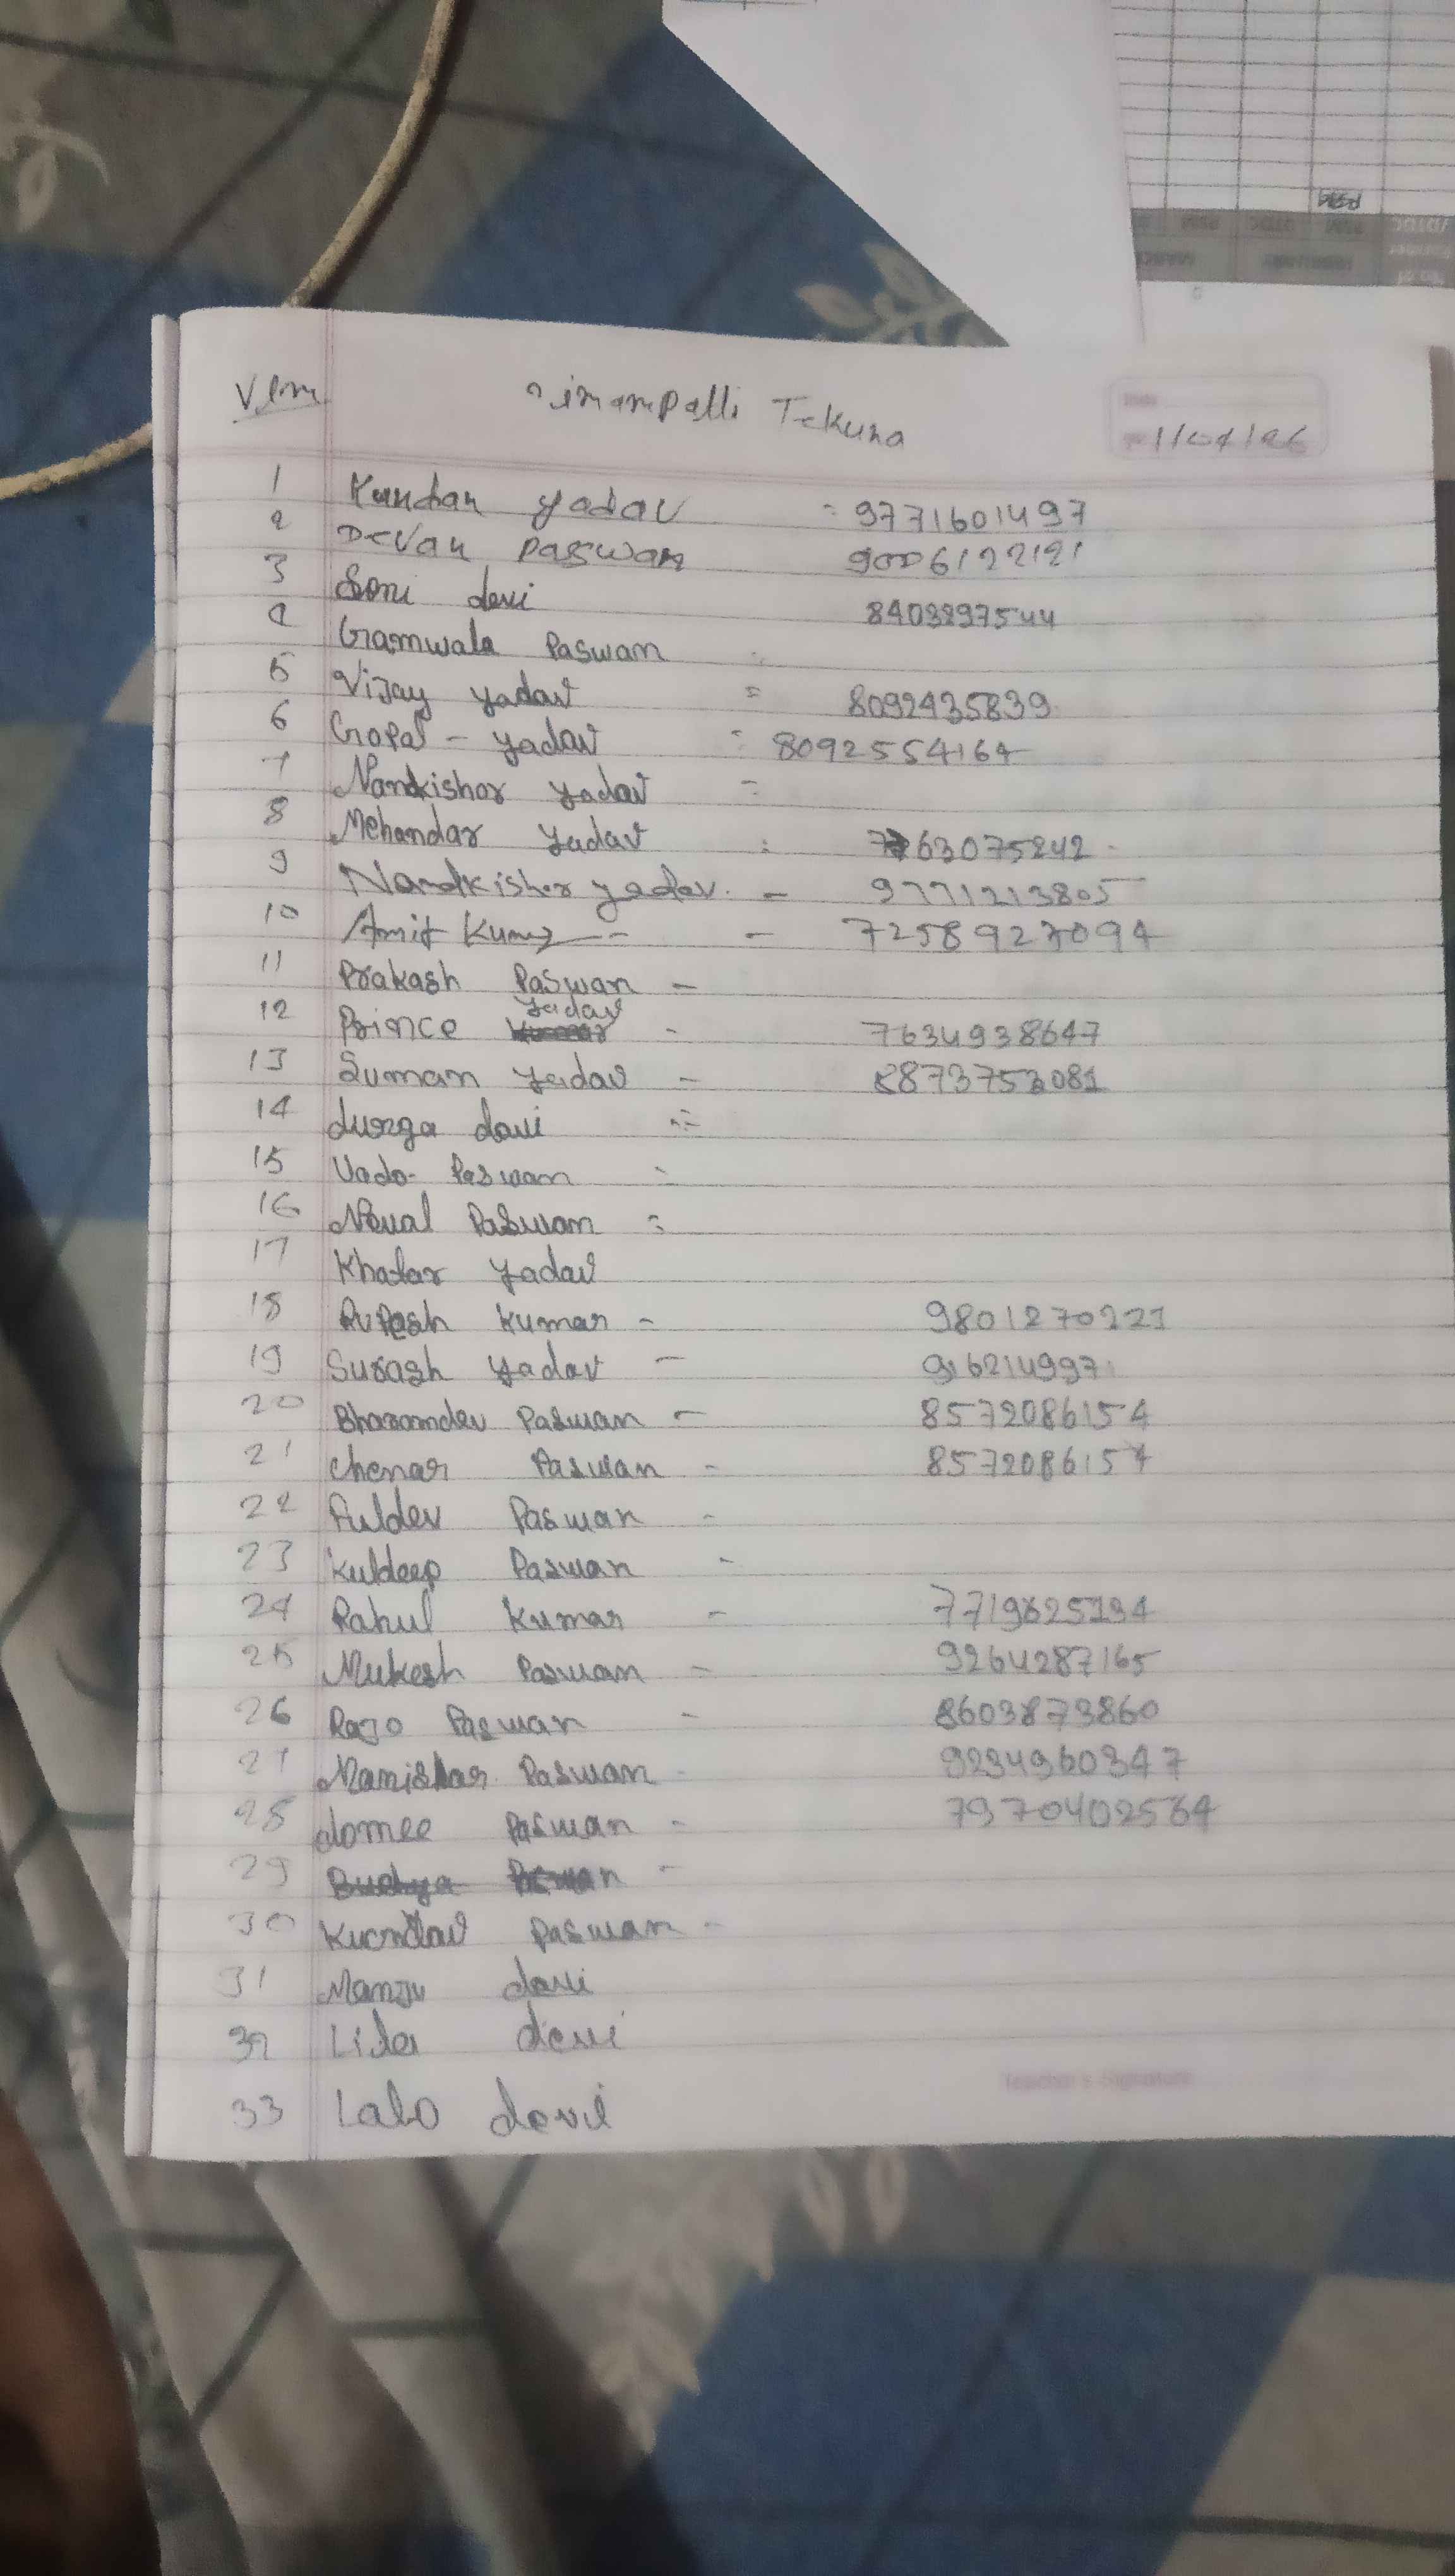 Tekuna
1 Kundan yadav : 9771601497
2 Devan paswan 9006122121
3 Soni devi 8403297544
4 Gramwala Paswan :
5 Vijay yadav = 8092435839
6 Gopal - yadav : 8092554164
7 Nandkishor yadav =
8 Mehandar yadav : 7763075242
9 Nandkishor yadav. - 9771213805
10 Amit Kumar - 7258927094
11 Prakash Paswan -
12 Prince yadav - 7634938647
13 Suman yadav - 8873753081
14 durga davi =
15 Vado Paswan =
16 Naval Paswan :
17 Khatar yadav
18 Rupesh kumar - 9801270221
19 Surash yadav - 916214997
20 Bharamdev Paswan - 8572086154
21 chenar Paswan - 8572086154
22 Fuldev Paswan -
23 Kuldeep Paswan -
24 Rahul Kumar - 7719625194
25 Mukesh Paswan - 9264287165
26 Rajo Paswan - 8603873860
27 Paswan - 9234960347
28 domee Paswan - 7970402564
29
30 Paswan -
31 Manju davi
32 Lila devi
33 Lalo devi
Teacher's Signature